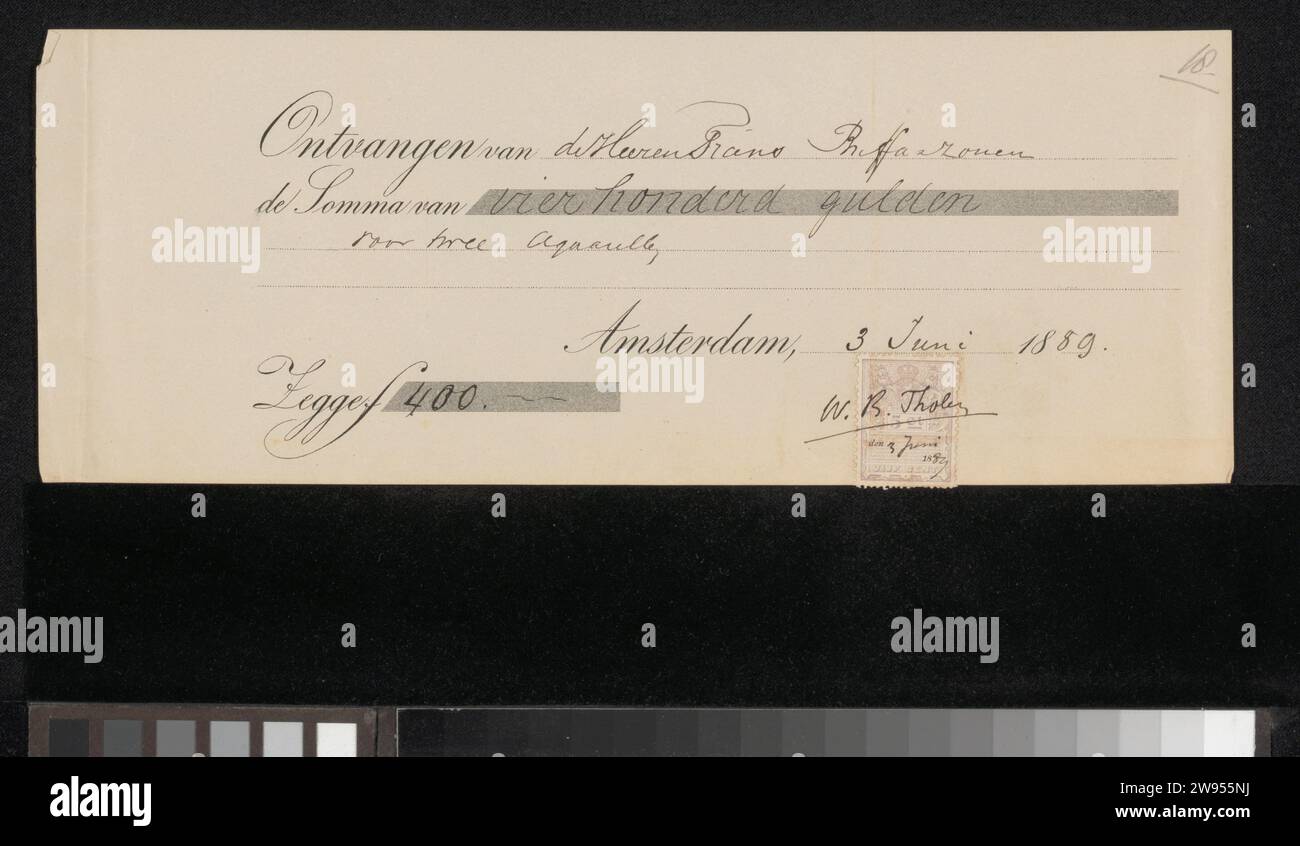 18
Ontvangen van de Heeren Frans Buffa & zonen
de Somma van vier honderd gulden
voor twee Aquarellen
Amsterdam, 3 Juni 1889.
Zegge f 400.
W. B. Tholen
5 ct
den 3 Juni
1889
VIJF CENT
alamy
Image ID: 2W955NJ
www.alamy.com